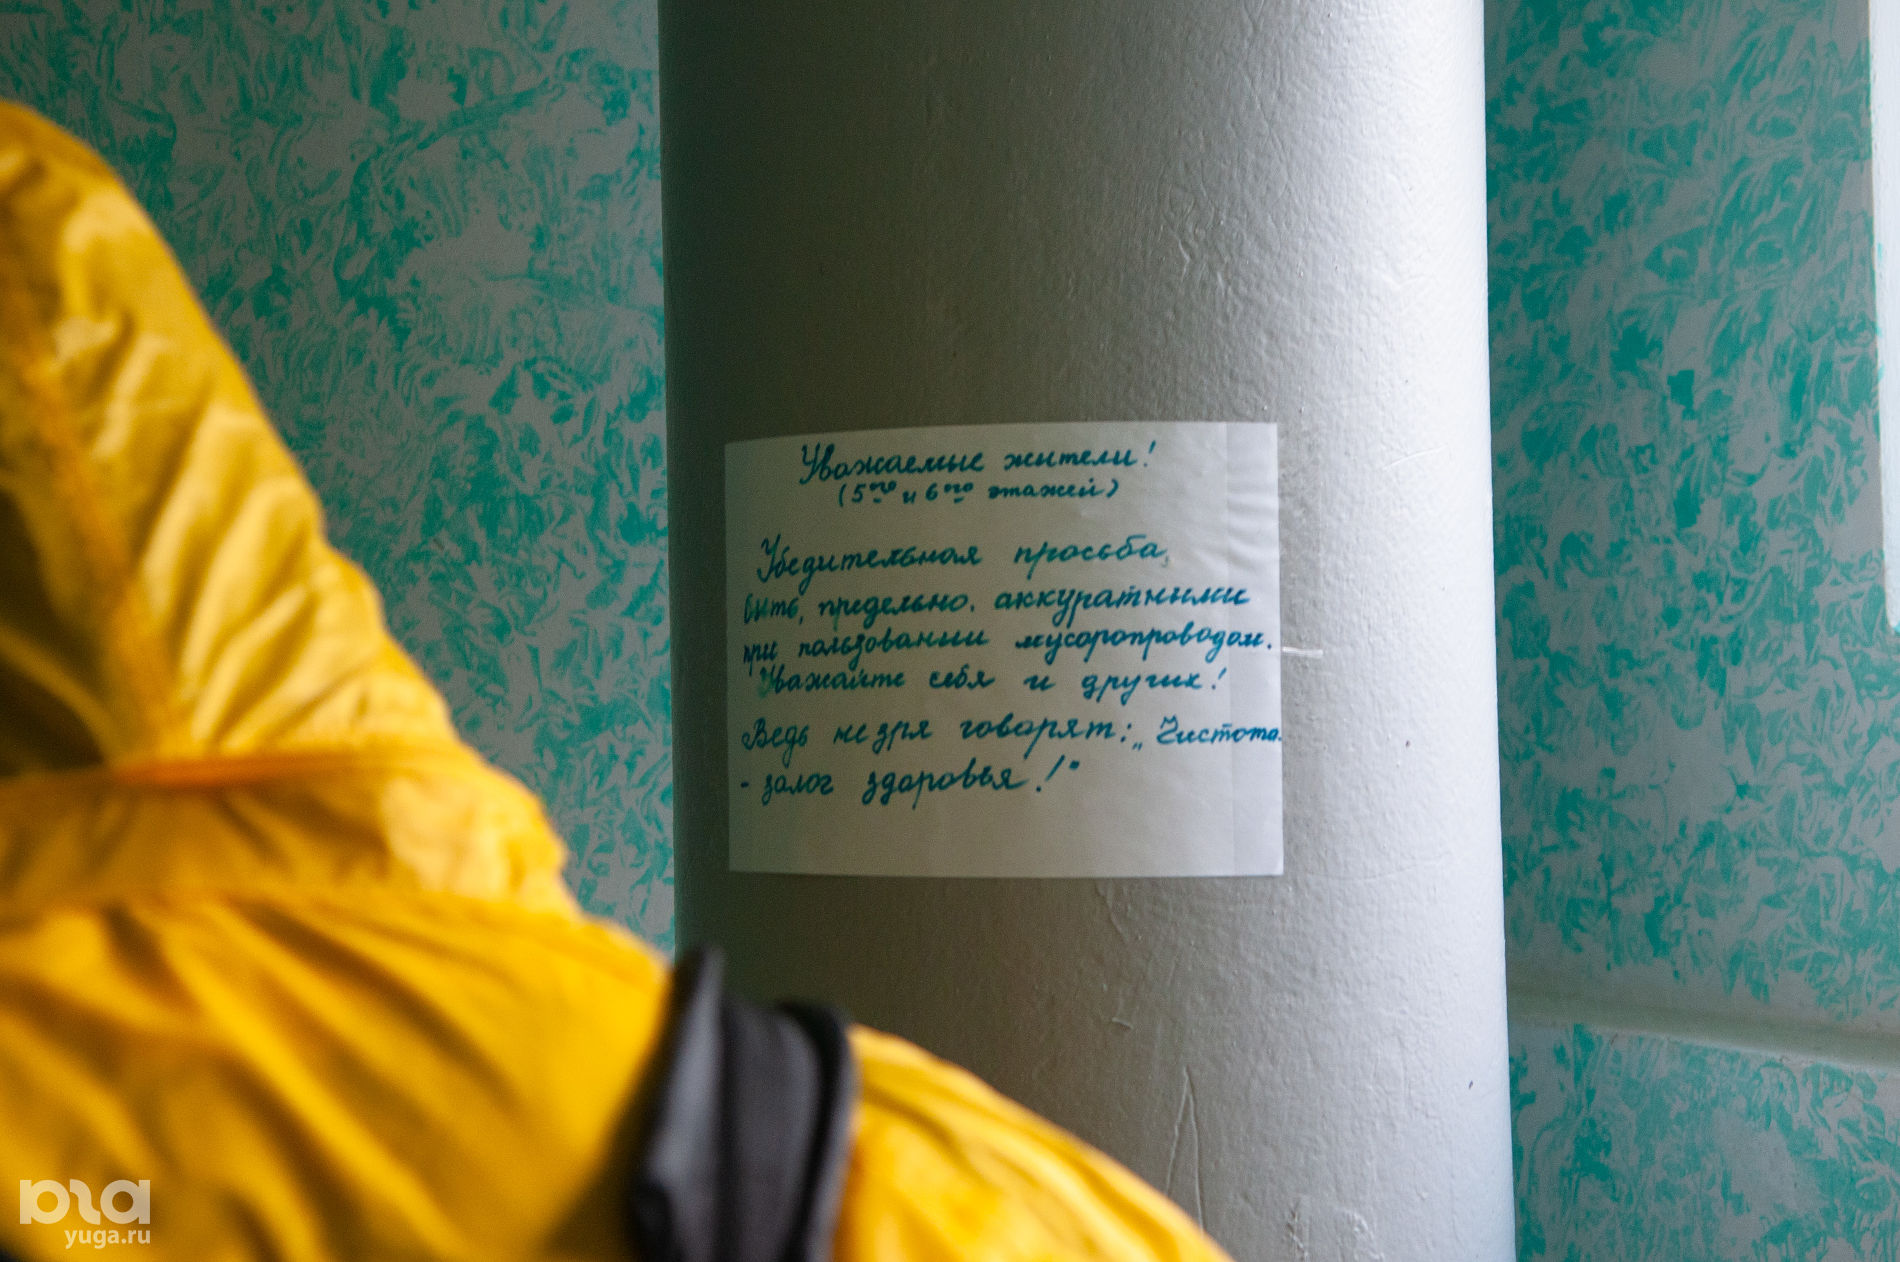 Уважаемые жители!
(5ого и 6ого этажей)
Убедительная просьба,
быть, предельно, аккуратными
при пользовании мусоропроводом.
Уважайте себя и других!
Ведь не зря говорят: „Чистота
- залог здоровья!"
yuga.ru